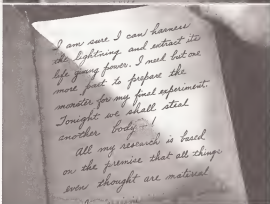 I am sure I can harness
the lightning and extract its
life giving power. I need but one
more part to prepare the
monster for my final experiment.
Tonight we shall steal
another body!
All my research is based
on the premise that all things
even thought are material